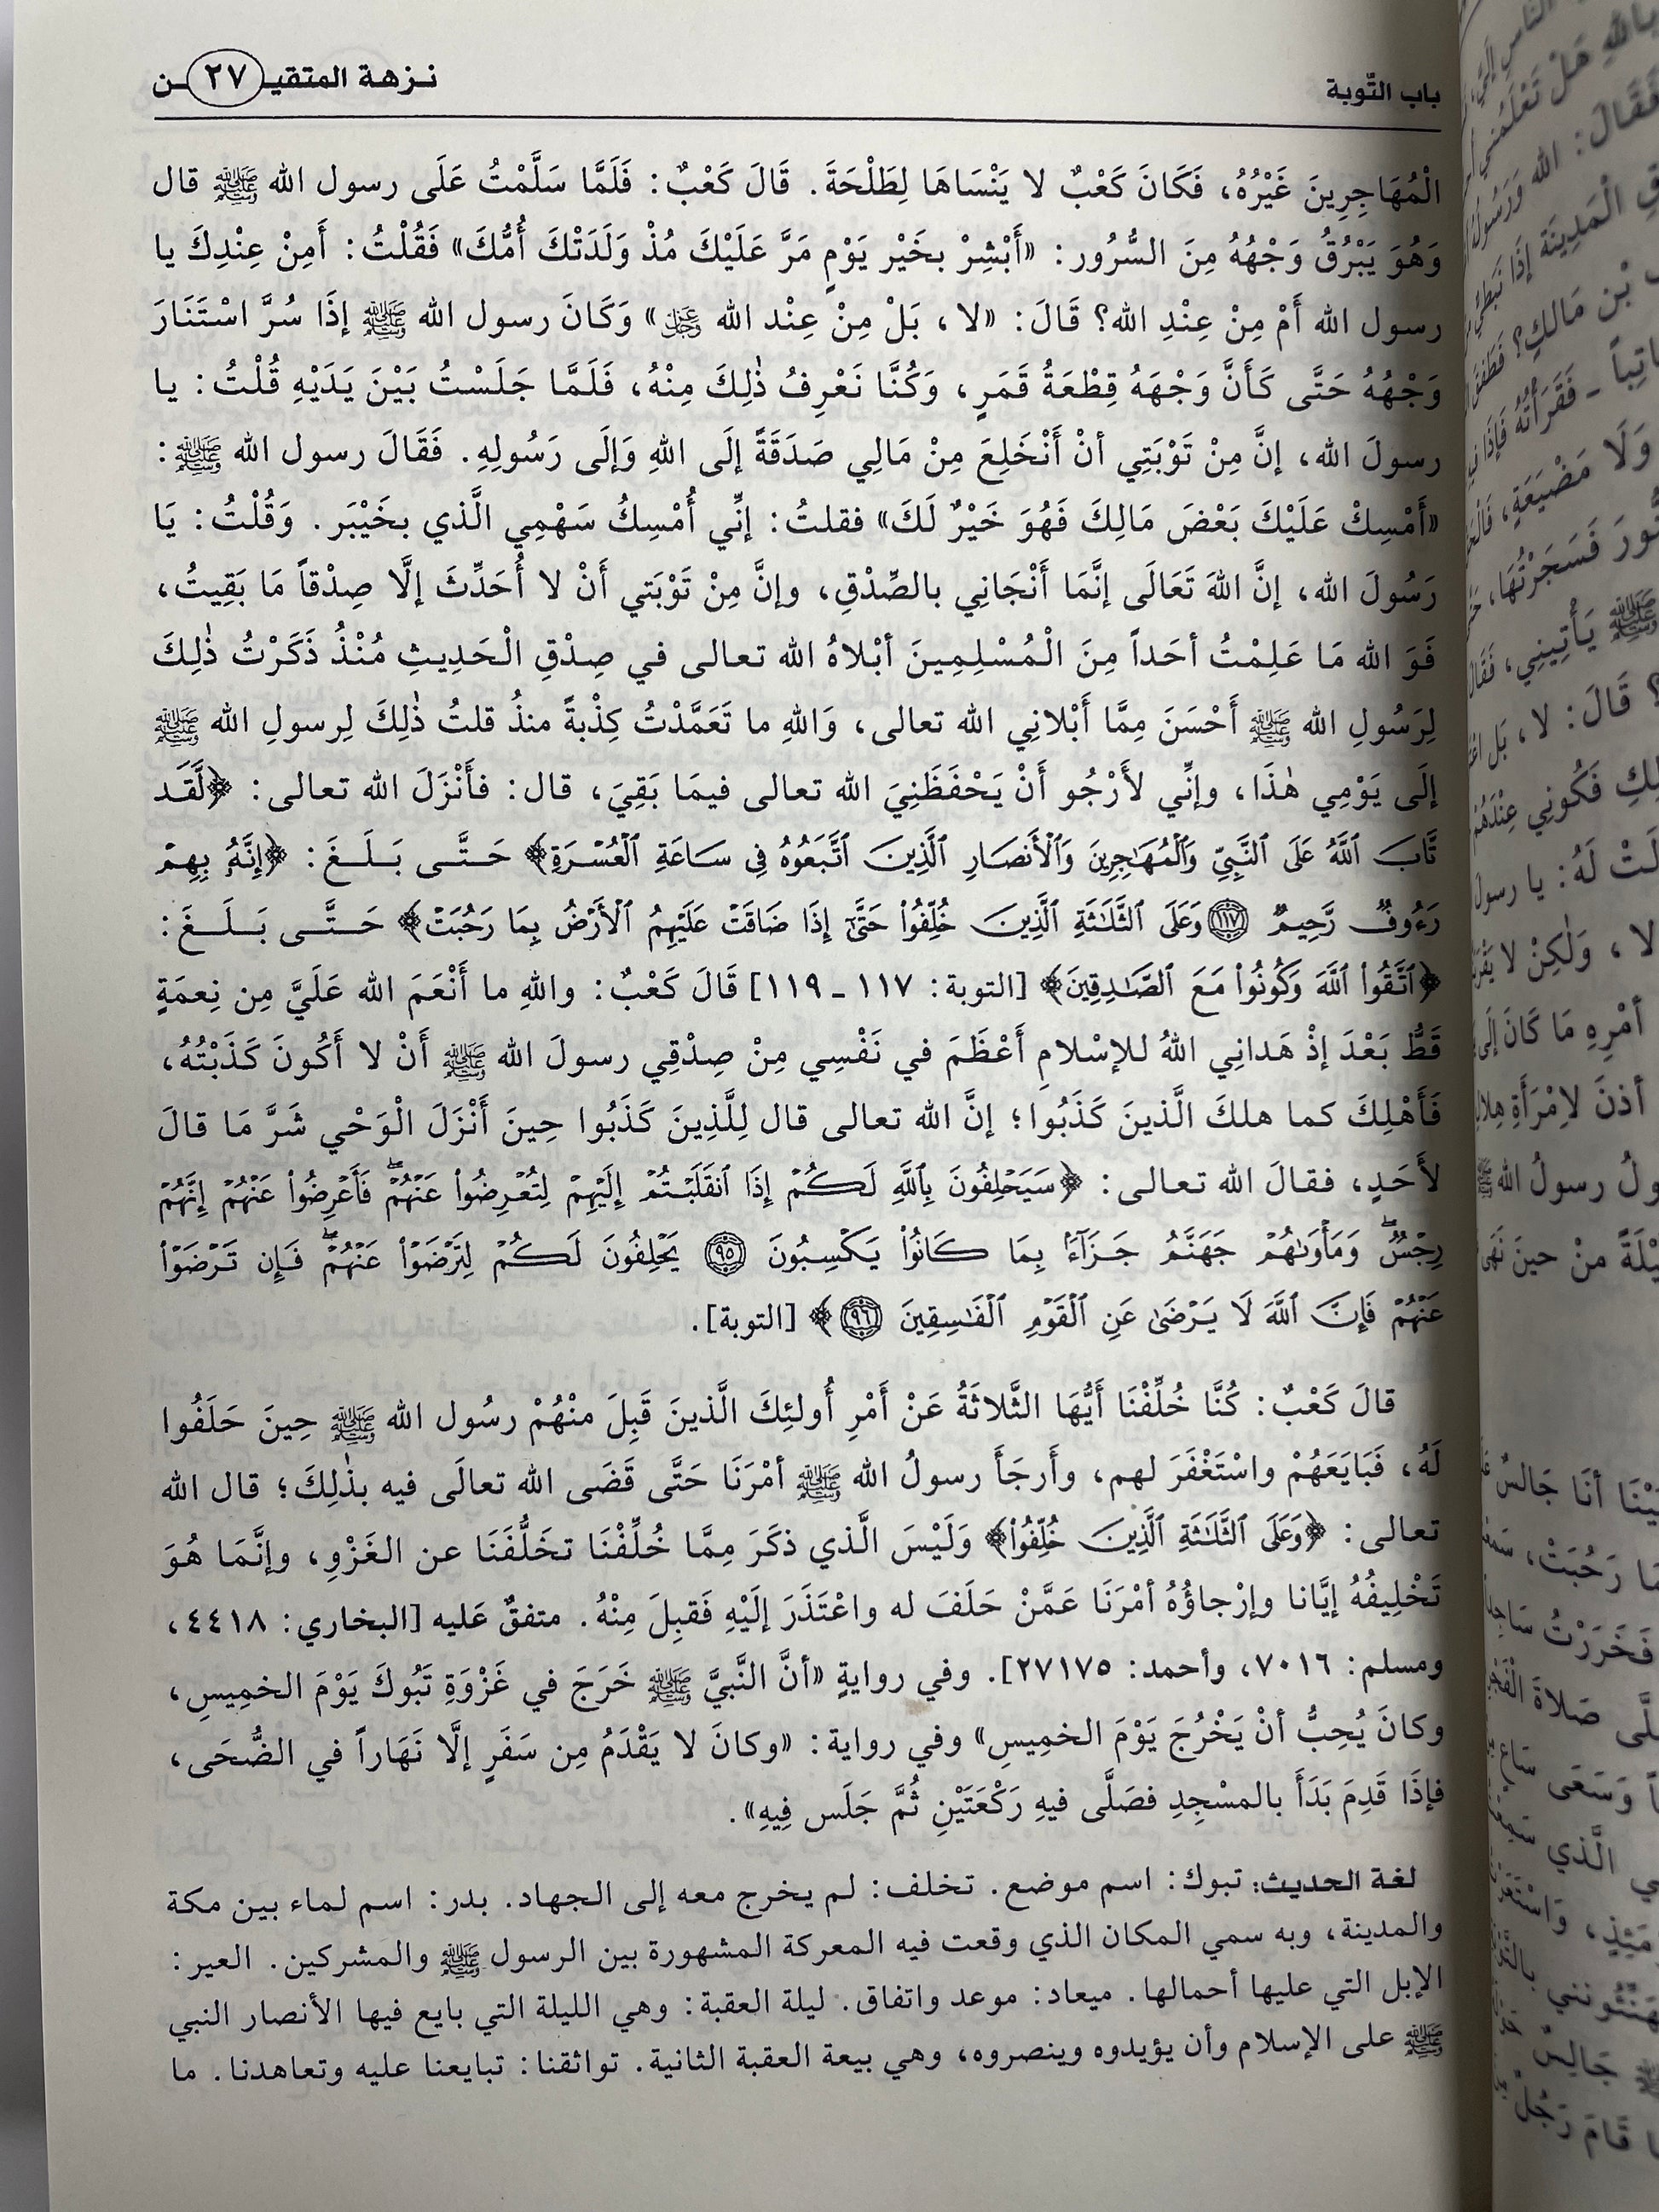 باب التّوبة
نـزهـة المتقيـ ٢٧ ـن
الْمُهَاجِرِينَ غَيْرُهُ، فَكَانَ كَعْبٌ لا يَنْسَاهَا لِطَلْحَةَ. قَالَ كَعْبٌ: فَلَمَّا سَلَّمْتُ عَلَى رسول الله ﷺ قال
وَهُوَ يَبْرُقُ وَجْهُهُ مِنَ السُّرُور: «أَبْشِرْ بخَيْر يَوْمٍ مَرَّ عَلَيْكَ مُذْ وَلَدَتْكَ أُمُّكَ» فَقُلْتُ: أَمِنْ عِنْدِكَ يا
رسول الله أَمْ مِنْ عِنْدِ الله؟ قَالَ: «لا، بَلْ مِنْ عِنْد الله عزوجل» وَكَانَ رسول الله ﷺ إذَا سُرَّ اسْتَنَارَ
وَجْهُهُ حَتَّى كَأَنَّ وَجْهَهُ قِطْعَةُ قَمَرٍ، وَكُنَّا نَعْرِفُ ذٰلِكَ مِنْهُ، فَلَمَّا جَلَسْتُ بَيْنَ يَدَيْهِ قُلْتُ: يا
رسولَ الله، إنَّ مِنْ تَوْبَتِي أنْ أَنْخَلِعَ مِنْ مَالِي صَدَقَةً إلَى اللهِ وَإلَى رَسُولِهِ. فَقَالَ رسول الله ﷺ:
«أَمْسِكْ عَلَيْكَ بَعْضَ مَالِكَ فَهُوَ خَيْرٌ لَكَ» فقلتُ: إنِّي أُمْسِكُ سَهْمِي الَّذي بخَيْبَر. وَقُلْتُ: يَا
رَسُولَ الله، إنَّ اللهَ تَعَالَى إنَّمَا أَنْجَانِي بالصِّدْقِ، وإنَّ مِنْ تَوْبَتي أَنْ لا أُحَدِّثَ إلَّا صِدْقاً مَا بَقِيتُ،
فَوَ الله مَا عَلِمْتُ أحَداً مِنَ الْمُسْلِمِينَ أبْلاهُ الله تعالى في صِدْقِ الْحَدِيثِ مُنْذُ ذَكَرْتُ ذٰلِكَ
لِرَسُولِ الله ﷺ أَحْسَنَ مِمَّا أَبْلانِي الله تعالى، وَاللهِ ما تَعَمَّدْتُ كِذْبةً منذُ قلتُ ذٰلِكَ لِرسولِ الله ﷺ
إلَى يَوْمِي هٰذَا، وإنِّي لأَرْجُو أَنْ يَحْفَظَنِيَ الله تعالى فيمَا بَقِيَ، قال: فأَنْزَلَ الله تعالى: ﴿لَّقَد
تَّابَ ٱللَّهُ عَلَى ٱلنَّبِيِّ وَٱلْمُهَـٰجِرِينَ وَٱلْأَنصَارِ ٱلَّذِينَ ٱتَّبَعُوهُ فِى سَاعَةِ ٱلْعُسْرَةِ﴾ حَـتَّـى بَـلَـغَ: ﴿إِنَّهُۥ بِهِمْ
رَءُوفٌ رَّحِيمٌ ١١٧ وَعَلَى ٱلثَّلَـٰثَةِ ٱلَّذِينَ خُلِّفُوا۟ حَتَّىٰٓ إِذَا ضَاقَتْ عَلَيْهِمُ ٱلْأَرْضُ بِمَا رَحُبَتْ﴾ حَـتَّـى بَـلَـغَ:
﴿ٱتَّقُوا۟ ٱللَّهَ وَكُونُوا۟ مَعَ ٱلصَّـٰدِقِينَ﴾ [التوبة: ١١٧ ـ ١١٩] قَالَ كَعْبٌ: واللهِ ما أَنْعَمَ الله عَلَيَّ مِن نِعمَةٍ
قَطُّ بَعْدَ إذْ هَدانِي اللهُ للإسْلامِ أَعْظَمَ في نَفْسِي مِنْ صِدْقِي رسولَ الله ﷺ أَنْ لا أَكُونَ كَذَبْتُهُ،
فَأَهْلِكَ كما هلكَ الَّذينَ كَذَبُوا؛ إنَّ الله تعالى قال لِلَّذِينَ كَذَبُوا حِينَ أَنْزَلَ الْوَحْي شَرَّ مَا قالَ
لأَحَدٍ، فقالَ الله تعالى: ﴿سَيَحْلِفُونَ بِٱللَّهِ لَكُمْ إِذَا ٱنقَلَبْتُمْ إِلَيْهِمْ لِتُعْرِضُوا۟ عَنْهُمْ ۖ فَأَعْرِضُوا۟ عَنْهُمْ إِنَّهُمْ
رِجْسٌ ۖ وَمَأْوَىٰهُمْ جَهَنَّمُ جَزَآءًۢ بِمَا كَانُوا۟ يَكْسِبُونَ ٩٥ يَحْلِفُونَ لَكُمْ لِتَرْضَوْا۟ عَنْهُمْ ۖ فَإِن تَرْضَوْا۟
عَنْهُمْ فَإِنَّ ٱللَّهَ لَا يَرْضَىٰ عَنِ ٱلْقَوْمِ ٱلْفَـٰسِقِينَ ٩٦﴾ [التوبة].
قالَ كَعْبٌ: كُنَّا خُلِّفْنَا أَيُّهَا الثَّلاثَةُ عَنْ أَمْرِ أُولئِكَ الَّذينَ قَبِلَ منْهُمْ رسُول الله ﷺ حِينَ حَلَفُوا
لَهُ، فَبَايَعَهُمْ واسْتَغْفَرَ لهم، وأَرجَأَ رسولُ الله ﷺ أمْرَنَا حَتَّى قَضَى الله تعالَى فيه بذٰلِكَ؛ قال الله
تعالى: ﴿وَعَلَى ٱلثَّلَـٰثَةِ ٱلَّذِينَ خُلِّفُوا۟﴾ وَلَيْسَ الَّذي ذكَرَ مِمَّا خُلِّفْنَا تخَلُّفَنَا عن الغَزْوِ، وإنَّمَا هُوَ
تَخْلِيفُهُ إيَّانا وإرْجاؤُهُ أمْرَنَا عَمَّنْ حَلَفَ له واعْتَذَرَ إلَيْهِ فَقبِلَ مِنْهُ. متفقٌ عَليه [البخاري: ٤٤١٨،
ومسلم: ٧٠١٦، وأحمد: ٢٧١٧٥]. وفي روايةٍ «أنَّ النَّبيَّ ﷺ خَرَجَ في غَزْوَةِ تَبُوكَ يَوْمَ الخمِيسِ،
وكانَ يُحِبُّ أنْ يَخْرُجَ يَوْمَ الخمِيسِ» وفي رواية: «وكانَ لا يَقْدَمُ مِن سَفَرٍ إلَّا نَهَاراً في الضُّحَى،
فإذَا قَدِمَ بَدَأَ بالمسْجِدِ فصَلَّى فيهِ رَكْعَتَيْنِ ثُمَّ جَلَس فِيهِ».
لغة الحديث: تبوك: اسم موضع. تخلف: لم يخرج معه إلى الجهاد. بدر: اسم لماء بين مكة
والمدينة، وبه سمي المكان الذي وقعت فيه المعركة المشهورة بين الرسول ﷺ والمشركين. العير:
الإبل التي عليها أحمالها. ميعاد: موعد واتفاق. ليلة العقبة: وهي الليلة التي بايع فيها الأنصار النبي
ﷺ على الإسلام وأن يؤيدوه وينصروه، وهي بيعة العقبة الثانية. تواثقنا: تبايعنا عليه وتعاهدنا. ما